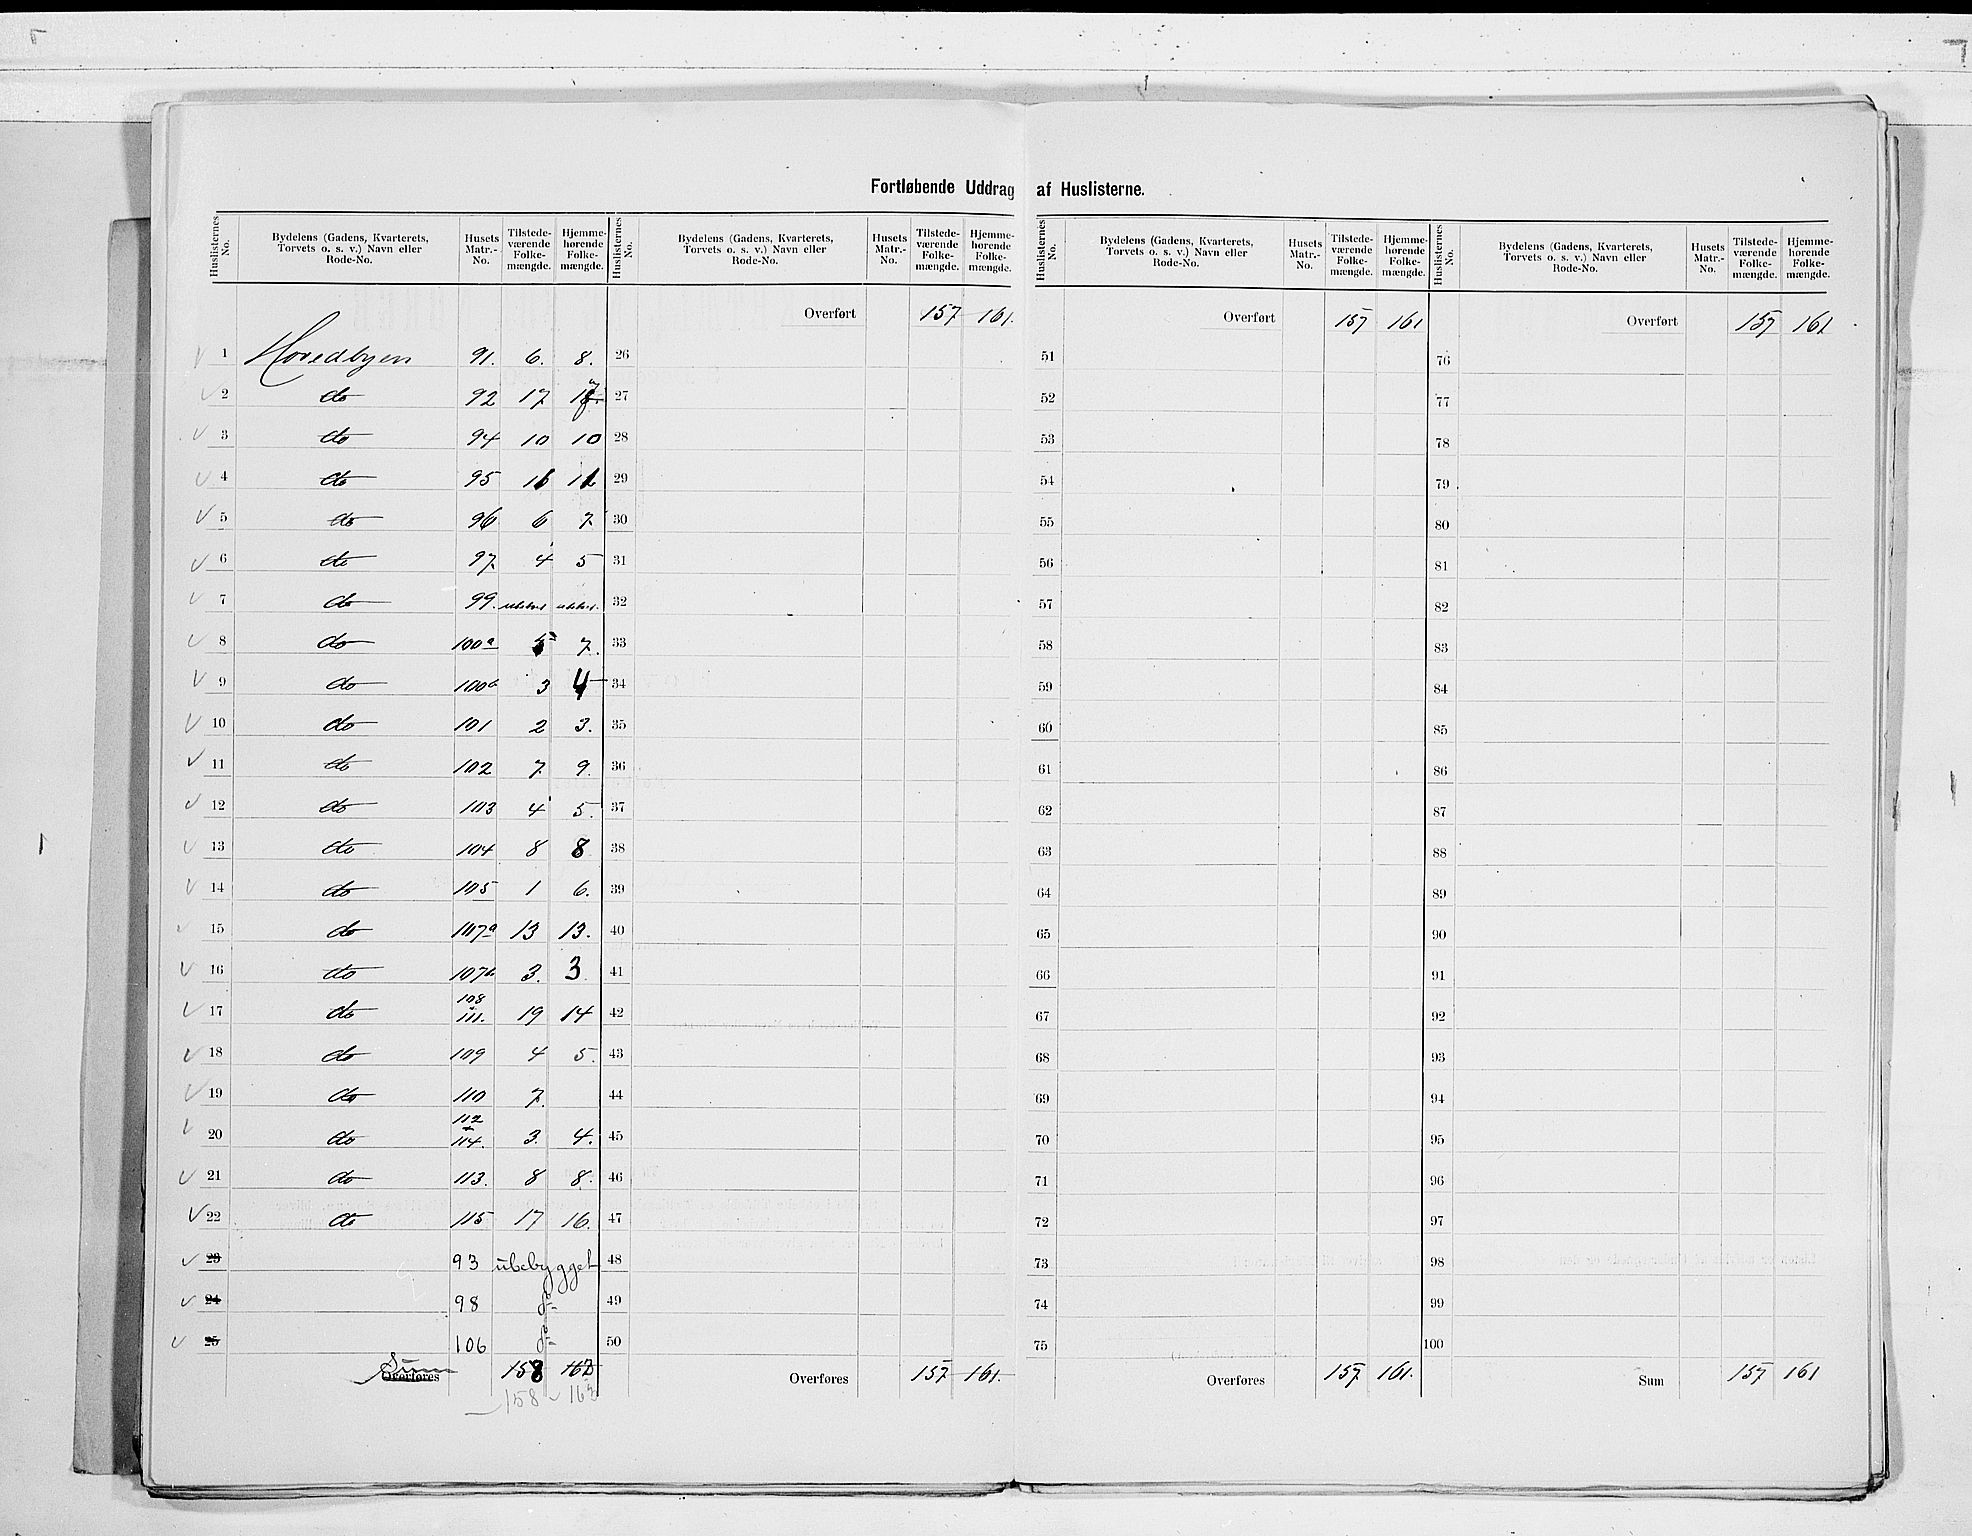 Fortløbende Uddrag af Huslisterne.
Huslisternes No. Bydelens (Gadens, Kvarterets, Torvets o. s. v.) Navn eller Rode-No. Husets Matr.-No. Tilstedeværende Folkemængde. Hjemmehørende Folkemængde.
1 Hovedbyen 91. 6. 8.
2 do 92 17
3 do 94 10 10
4 do 95
5 do 96 6 7
6 do 97 4 5
7 do 99.
8 do 100a 5 7.
9 do 100b 3 4
10 do 101 2 3.
11 do 102 7 9.
12 do 103 4 5.
13 do 104 8 8
14 do 105 1 6.
15 do 107a 13 13.
16 do 107b 3. 3.
17 do 108 111. 19 14
18 do 109 4 5.
19 do 110 7.
20 do 112 + 114. 3. 4.
21 do 113. 8 8.
22 do 115 17 16.
23 93 ubebygget
24 98 do
25 106 do
Sum Overføres 158
158
Huslisternes No. Bydelens (Gadens, Kvarterets, Torvets o. s. v.) Navn eller Rode-No. Husets Matr.-No. Tilstedeværende Folkemængde. Hjemmehørende Folkemængde.
Overført 157 161.
26
27
28
29
30
31
32
33
34
35
36
37
38
39
40
41
42
43
44
45
46
47
48
49
50
Overføres 157 161.
Huslisternes No. Bydelens (Gadens, Kvarterets, Torvets o. s. v.) Navn eller Rode-No. Husets Matr.-No. Tilstedeværende Folkemængde. Hjemmehørende Folkemængde.
Overført 157 161
51
52
53
54
55
56
57
58
59
60
61
62
63
64
65
66
67
68
69
70
71
72
73
74
75
Overføres 157 161.
Huslisternes No. Bydelens (Gadens, Kvarterets, Torvets o. s. v.) Navn eller Rode-No. Husets Matr.-No. Tilstedeværende Folkemængde. Hjemmehørende Folkemængde.
Overført 157 161
76
77
78
79
80
81
82
83
84
85
86
87
88
89
90
91
92
93
94
95
96
97
98
99
100
Sum 157 161